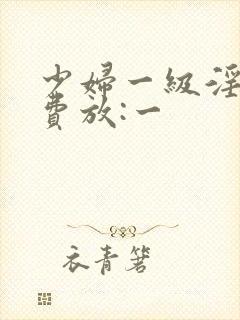 少婦一級淫
費放:一
衣青箬